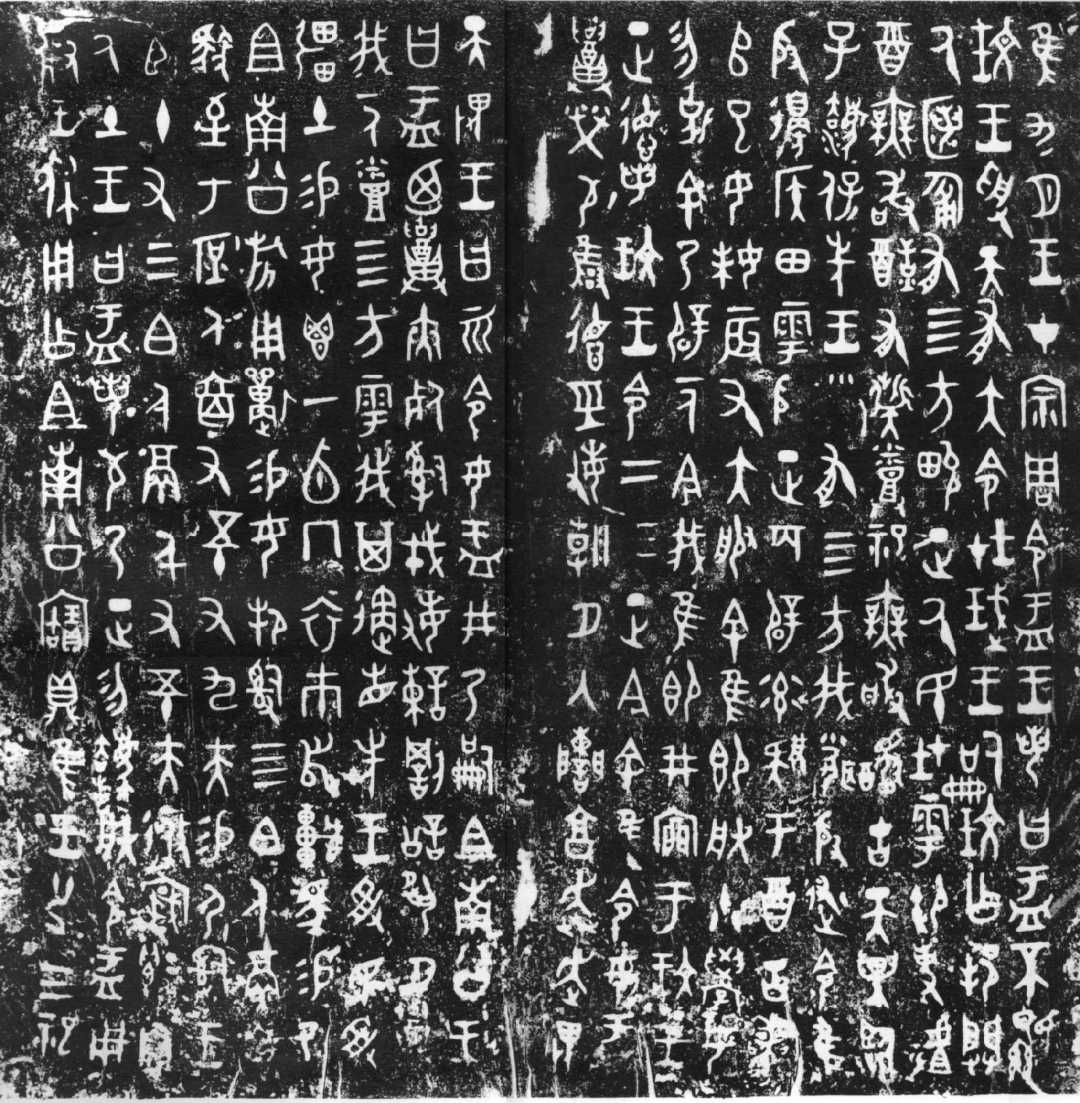 隹九月王才宗周令盂王若曰盂不顯
玟王受天有大令在珷王嗣玟乍邦闢
氒匿匍有四方畯正氒民在雩御事䖒
酉無敢酖有髭蒸祀無敢䤔古天異臨
子灋保先王有四方我聞殷述令隹
殷邊侯田雩殷正百辟率肄于酉古喪
師巳女妹辰又大服余隹即朕小學女
勿剋余乃辟一人今我隹即井㐭于玟王
正德若玟王令二三正今余隹令女盂
召榮敬雍德巠敏朝夕入讕享奔走畏
天畏王曰而令女盂井乃嗣且南公王
曰盂迺召夾死司戎敏諫罰訟夙夕召
我一人烝四方雩我其遹省先王受民受
疆土易女鬯一卣冂衣巿舄車馬易乃
且南公旂用狩易女邦司四白人鬲自
馭至于庶人六百又五十又九夫易尸司
王臣十又三白人鬲千又五十夫自
氒土王曰盂若敬乃正勿灋朕令盂用
對王休用乍且南公寶鼎隹王廿又三祀